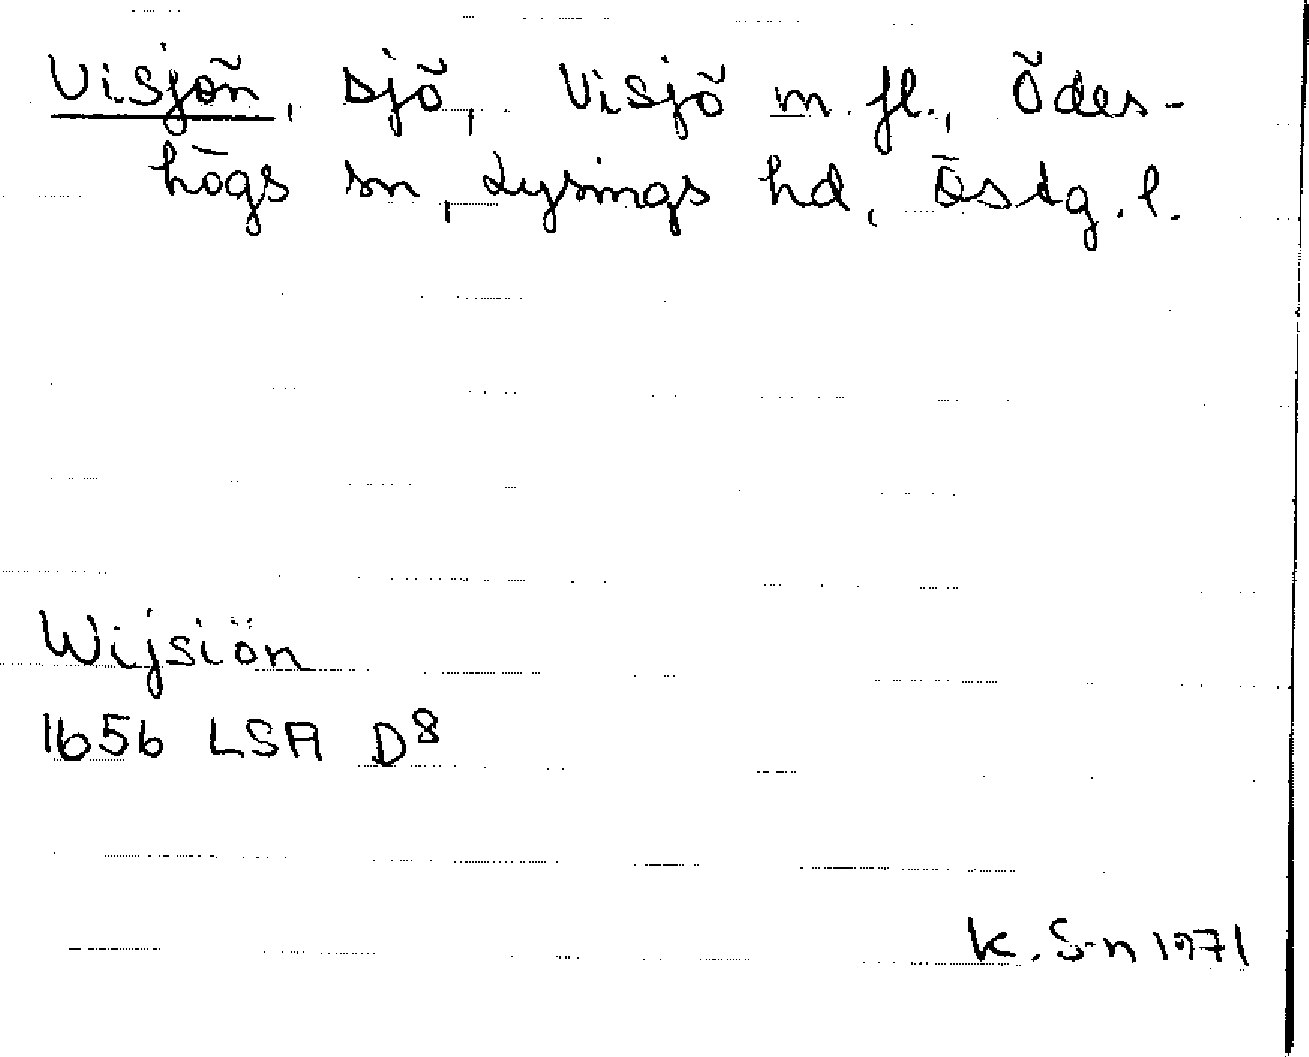 Visjön, sjö, Visjö m. fl., Ödes-
högs sn, Lysings hd, Östg. l.
Wijsiön
1656 LSA D8
K. S-n 1971